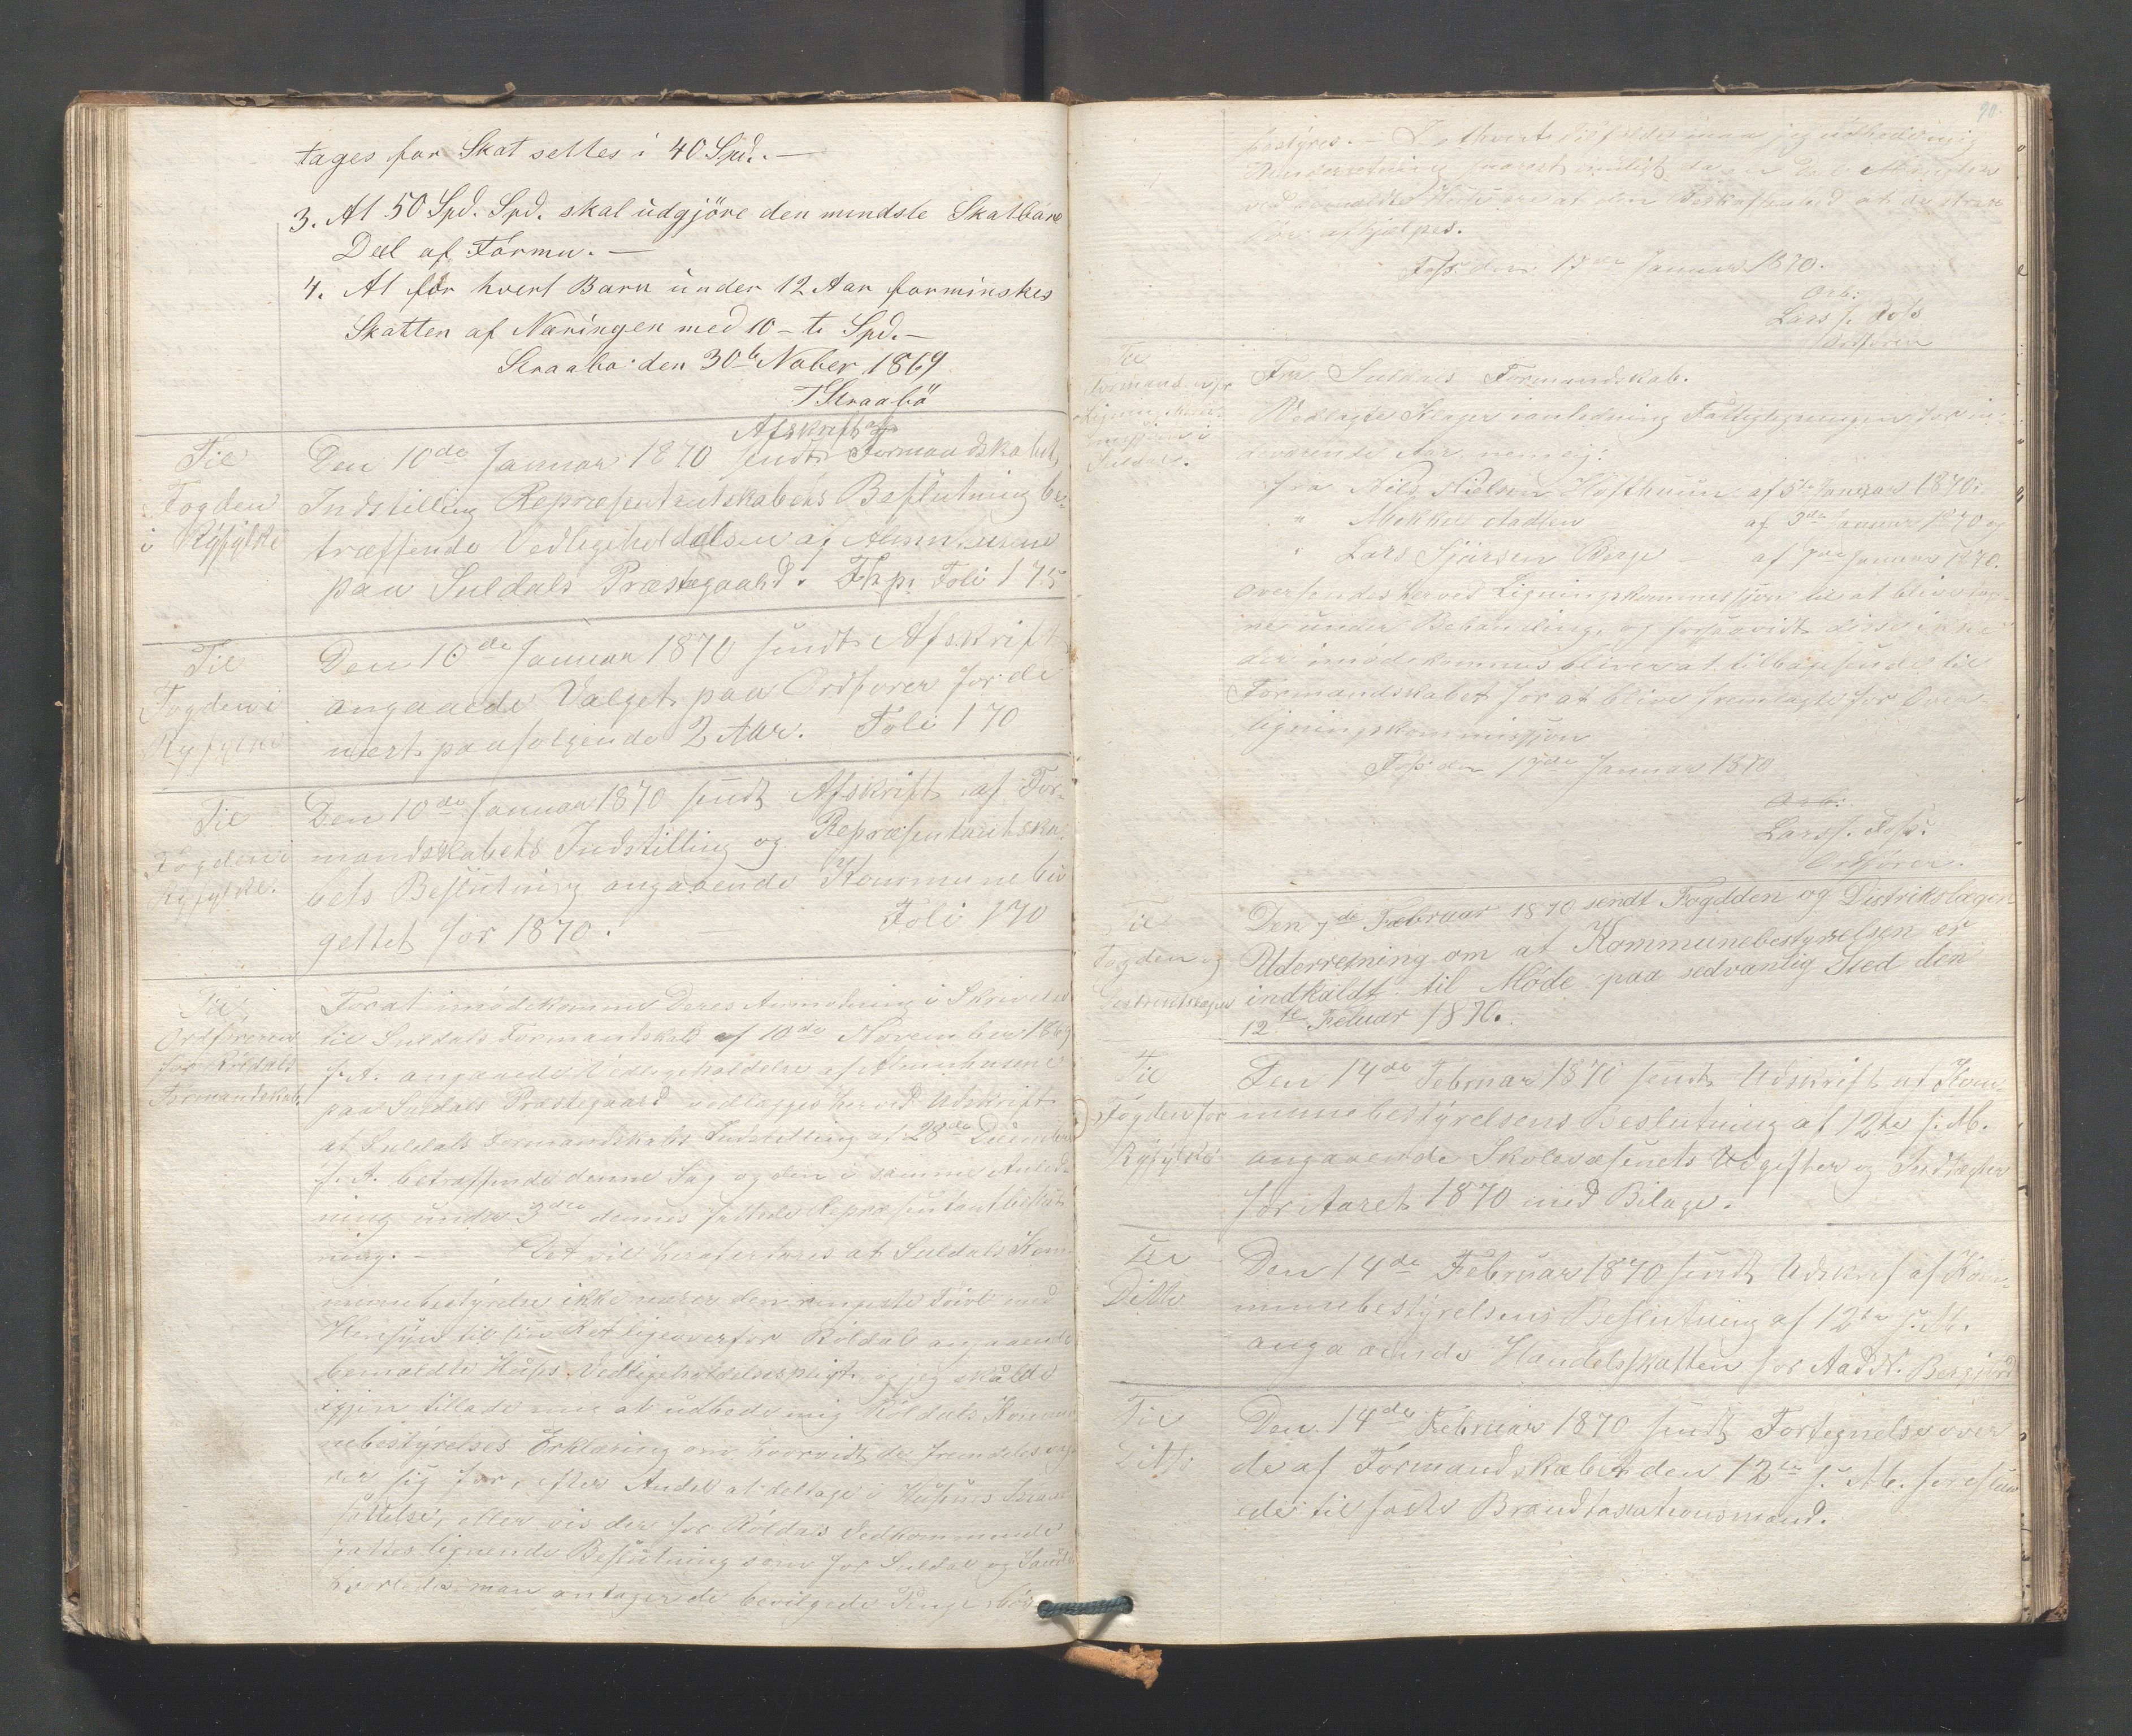 tages for Skat settes i 40 Spd. —
3. At 50 Spd. Spd. skal udgjöre den mindste Skatbare
Deel af Formu. —
4. At for hvert Barn under 12 Aar forminskes
Skatten af Næringen med 10 - ti Spd. —
Straabø den 30te Nober 1869
T Straabö
Til
Fogden
i Ryfylke
Afskrift af
Den 10de Januar 1870 sendt Formandskabets
Indstilling Repræsentantskabets Beslutning be-
træffende Vedligeholdelsen af
paa Suldals Præstegaard. Folio 175
Til
Fogden i
Ryfylke
Den 10de Januar 1870 sendt Afskrift
angaaede Valget paa Ordfører for de
næst paafølgende 2 Aar. Foli 170
Til
Fogden i
Ryfylke.
Den 10de Januar 1870 sendt Afskrift af For-
mandskabets Indstilling og Repræsentantska-
bets Beslutning angaaende Kommunebud
gettet for 1870. Foli 170
Til
Ordføreren
for Röldals
Formandskab.
For at imödekomme Deres Anmodning i Skrivelse
til Suldals Formandskab af 10de November 1869
f. A. angaaede Vedligeholdelse af
paa Suldals Præstegaard vedlægges herved Udskrift
af Suldals Formandskabs Indstilling af 28de December
f. A. betræffende denne Sag og den i samme Anled-
ning under 3die dennes fattede Repræsentantbeslut
ning. — Det vil heraf erfares at Suldals Kom-
munebestyrelse ikke nærer den ringeste Tvivl med
Hensyn til sin Ret ligeoverfor Röldal angaaende
bemældte Huses Vedligeholdelsespligt og jeg skulde
igjen tillade mig at udbede mig Röldals Kommu
nebestyrelses Erklæring om hvorvidt de fremdeles
sig for, efter Andel at deltage i Husenes
eller vis der for Röldals Vedkommende
fattes lignende Beslutning som for Suldal og
hvorledes man antager de bevilgede Penge bör
90.
bestyres. — I ethvert Tilfælde maa jeg udbede mig
Underretning snarest muligt da
ved bemeldte Huse ere af den Beskaffenhed at de strax
bör afhjælpes.
Foss den 17de Januar 1870.
Ærb:
Lars J. Foss
Ordförer
Til
Formanden for
Lignin. Kom-
missjon i
Suldal.
Fra Suldals Formandskab.
Vedlagte Klager ianledning Fattigligningen for in-
deværende Aar, nemlig:
fra Nils Nielsen af 5te Januar 1870.
" Mekkel af 3die Januar 1870 og
" Lars Sjursen Berge — af Januar 1870.
oversendes herved Ligningskommissjon til at blive tag-
ne under Behandling, og forsaavidt disse ikke
der imödekommes bliver at tilbagesende til
Formandskabet for at blive fremlagte for Over-
ligningskommissjon
Foss den 17de Januar 1870
Ærb:
Lars J. Foss.
Ordförer.
Til
Fogden og
Distriktslægen
Den 7de Februar 1870 sendt Fogdden og Distrikslægen
Uderretning om at Kommunebestyrelsen er
indkaldt til Möde paa sedvanlig Sted den
12te Febuar 1870.
Til
Fogden for
Ryfylke
Den 14de Februar 1870 sendt Udskrift af Kom
munebestyrelsens Beslutning af 12te s. M.
angaaende Skolevæsenets Udgifter og Indtægter
for Aaret 1870 med Bilage.
Til
Ditto
Den 14de Februar 1870 sendt Udskrif af Kom-
munebestyrelsens Beslutning af 12te s. M.
angaaende Handelsskatten for
Til
Ditto
Den 14de Februar 1870 sendt Fortegnelse over
de af Formandskabet den 12te s. M. foreslaa
ede til faste Brandtaxationsmænd.